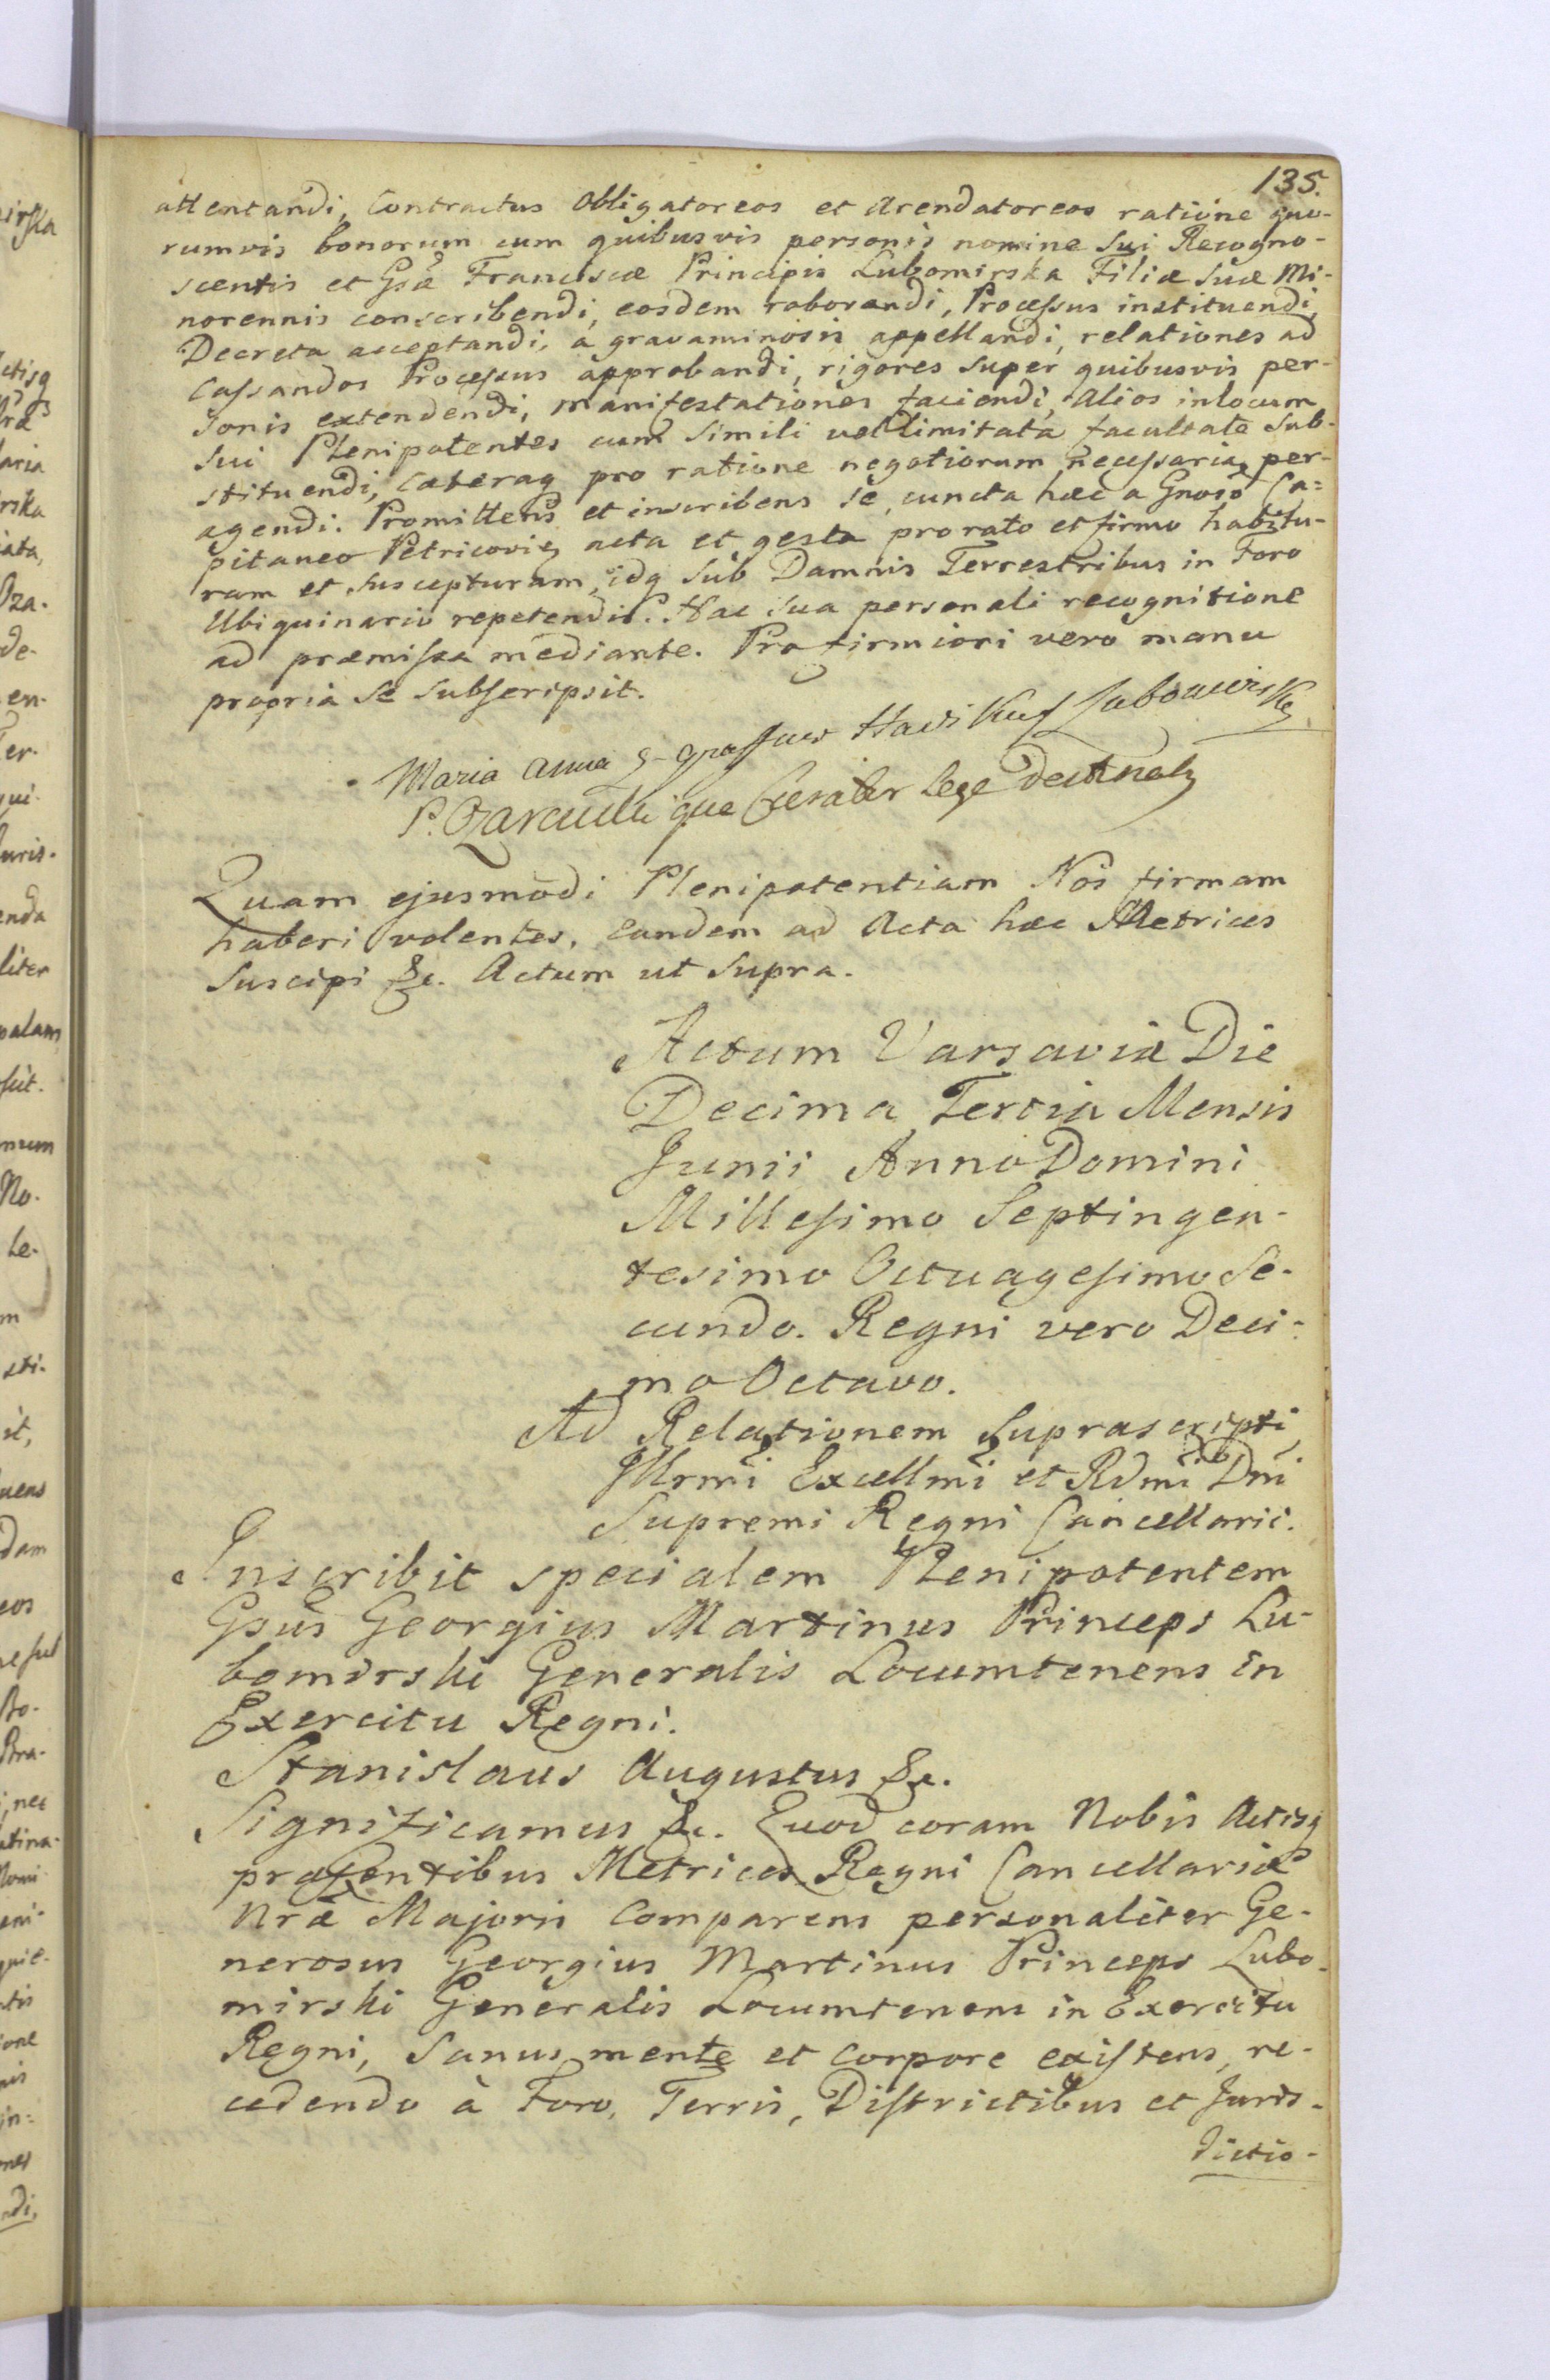 135.
attentandi, Contractus Obligatoreos et Arendatoreos ratione quo-
rumvis bonorum cum quibusvis personis nomine Sui Recogno-
scentis et Gsæ Franciscæ Principis Lubomirska Filiæ Suæ Mi-
norennis conscribendi, eosdem roborandi, Processus instituendi,
Decreta acceptandi, a gravaminosis appellandi, relationes ad
Cassandos Processus approbandi, rigores super quibusvis per-
sonis extendendi, manifestationes faciendi, Alios in locum
sui Plenipotentes cum simili vel limitata facultate sub-
stituendi, Cæteraq pro ratione negotiorum necessaria per-
agendi. Promittens et inscribens se, cuncta hæc a Gnoso Ca=
pitaneo Petricovien acta et gesta pro rato et firmo habitu-
ram et suscepturam, idq sub Damnis Terrestribus in Foro
Ubiquinario repetendis. Hac sua personali recognitione
ad præmissa mediante. Pro firmiori vero manu
propria se subscripsit.
Maria Anna
Quam ejusmodi Plenipotentiam Nos firmam
haberi volentes, eandem ad Acta hæc Metrices
Suscipi &c. Actum ut supra.
Actum Varsaviæ Die
Decima Tertia Mensis
Junii Anno Domini
Millesimo Septingen-
tesimo Octuagesimo Se-
cundo. Regni vero Deci-
mo Octavo.
Ad Relationem suprascripti
Illrmi Excellmi et Rdmi Dni
Supremi Regni Cancellarii.
Inscribit specialem Plenipotentem
Gsus Georgius Martinus Princeps Lu-
bomirski Generalis Locumtenens in
Exercitu Regni.
Stanislaus Augustus &c.
Significamus &c. Quod coram Nobis Actisq
præsentibus Metrices Regni Cancellariæ
Nræ Majoris Comparens personaliter Ge-
nerosus Georgius Martinus Princeps Lubo-
mirski Generalis Locumtenens in Exercitu
Regni, Sanus mente et corpore existens, re-
cedendo à Foro, Terris, Districtibus et Juris-
dictio-